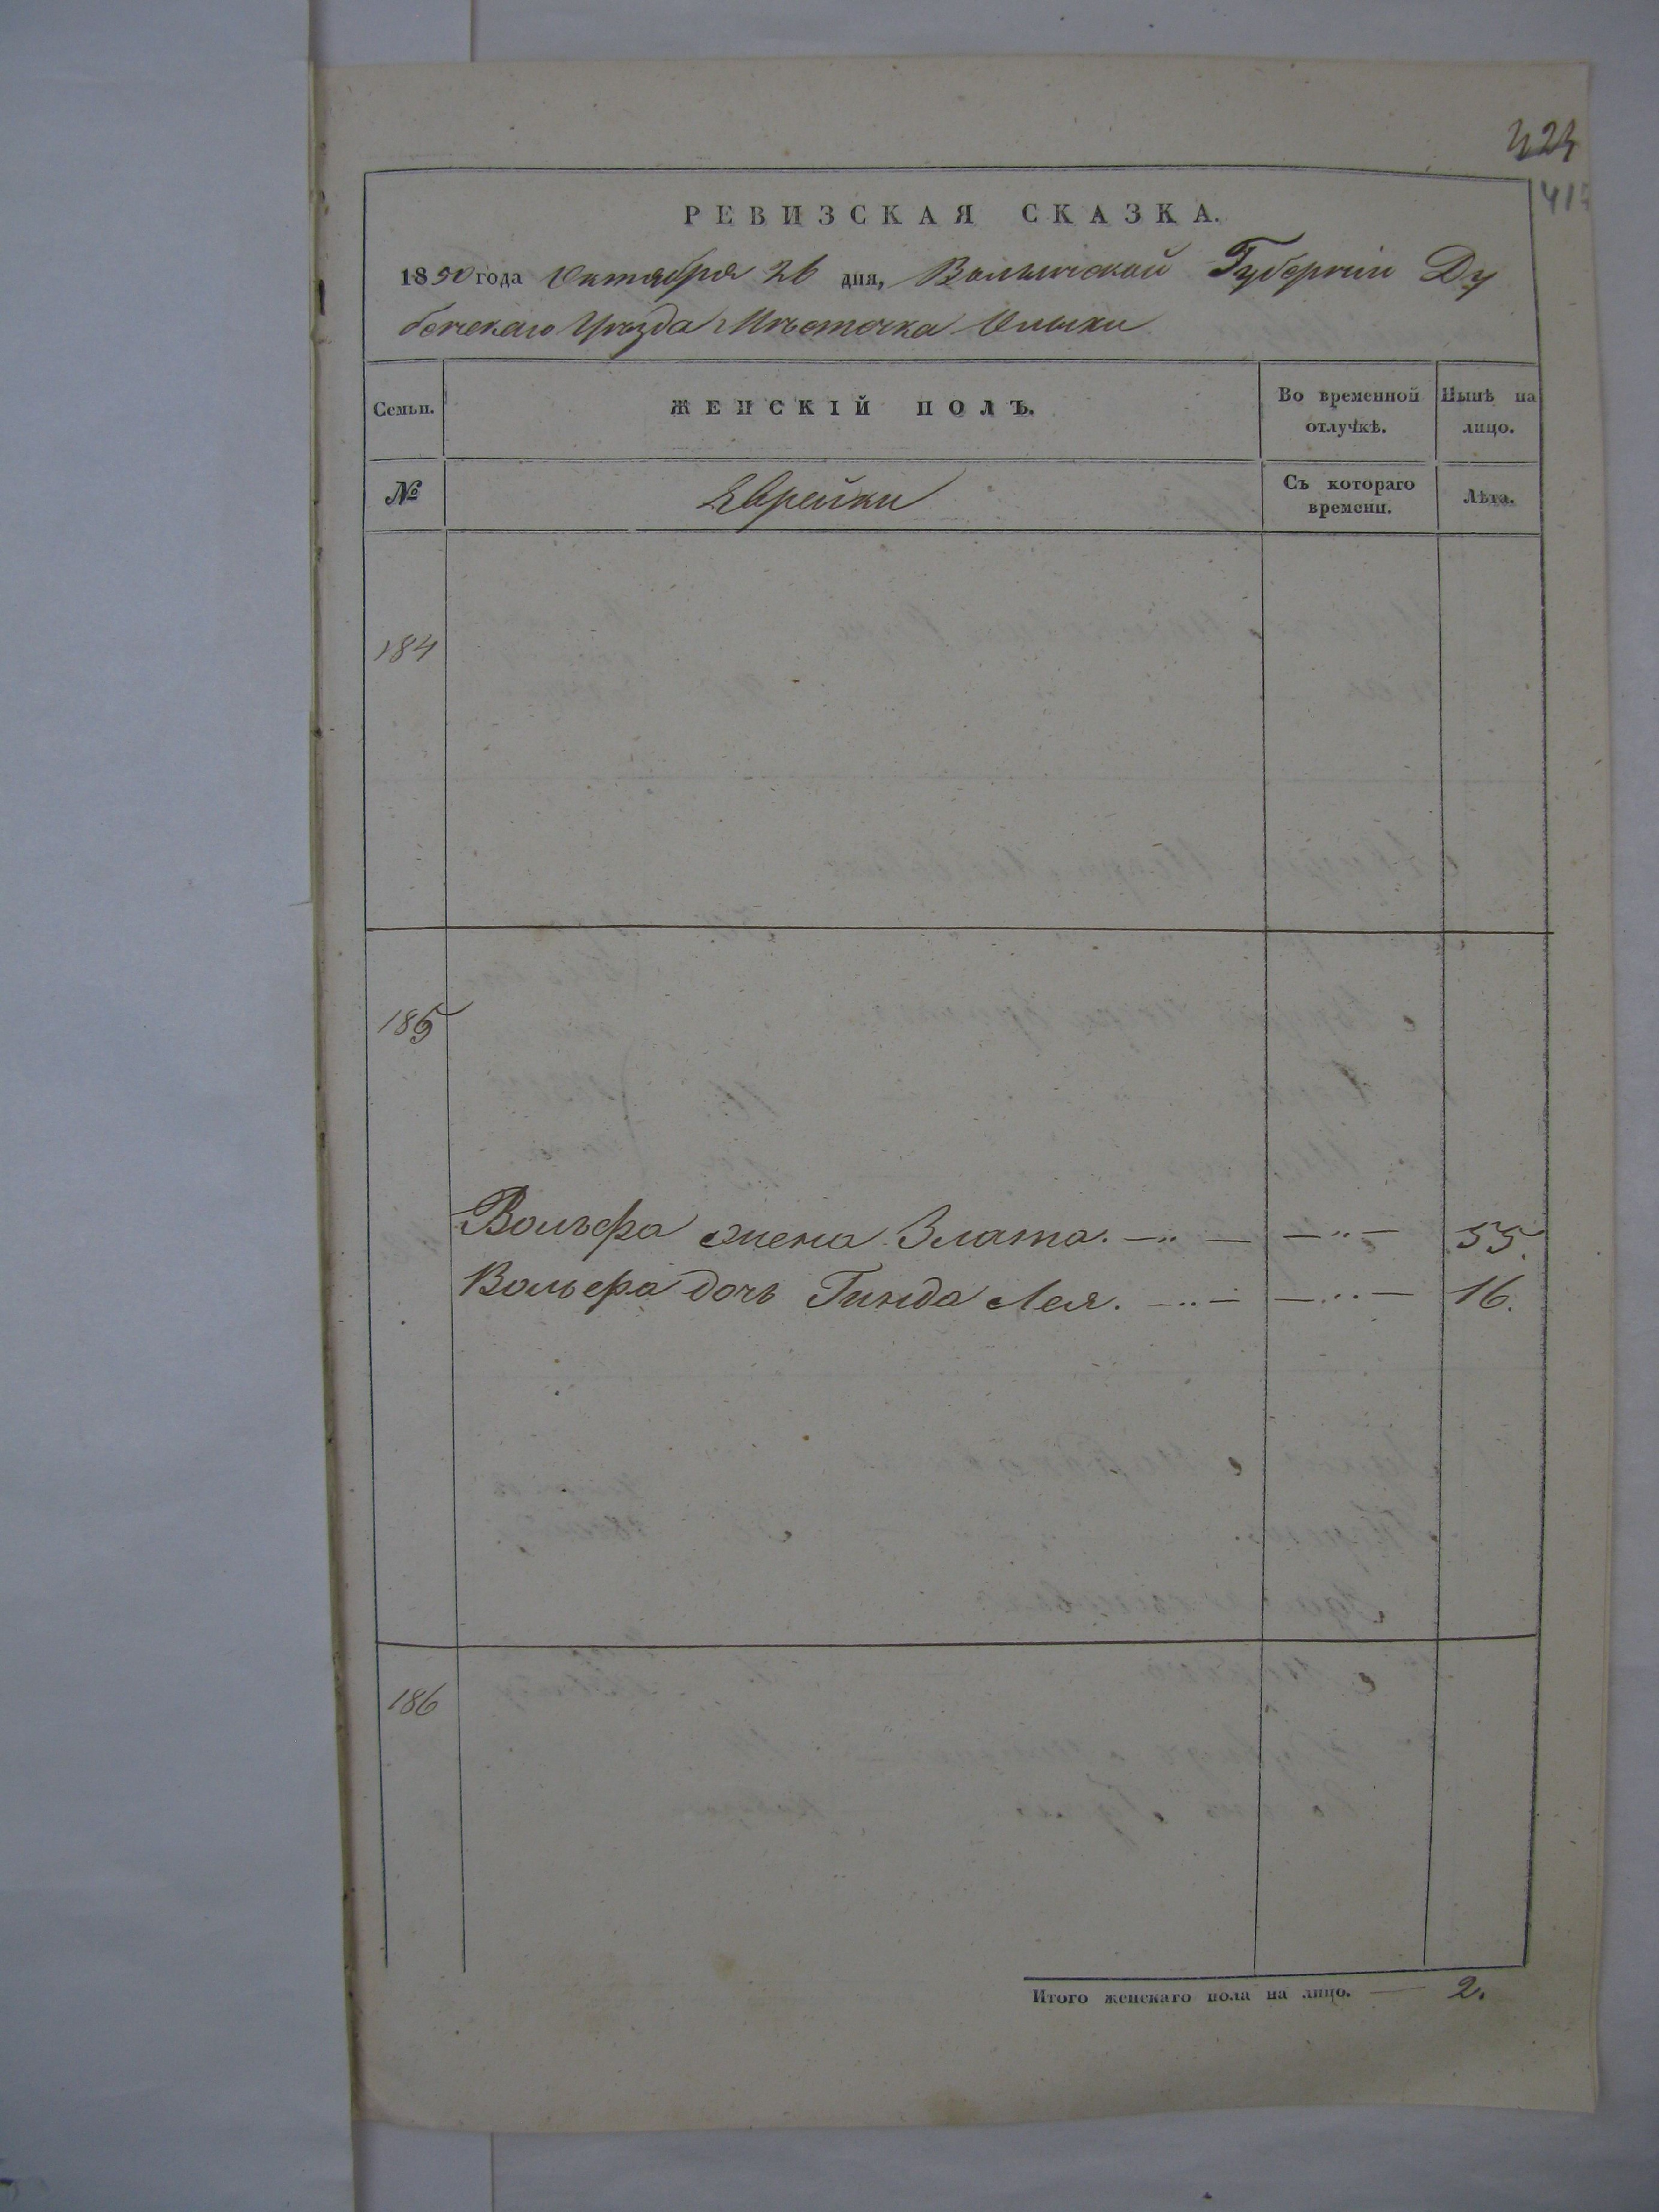 423
РЕВИЗСКАЯ СКАЗКА.
1850 года Октября 26 дня, Волынской Губернiи Ду
бенскаго Уѣзда Мѣстечка Олыки
Семьи.
ЖЕНСКІЙ ПОЛЪ.
Во временной отлучкѣ.
Нынѣ на лицо.
№
Еврейки
Съ котораго времени.
Лѣта.
184
185
Вольфа жена Злата. —„— —„— 55.
Вольфа дочь Гинда Лея. —„— —„— 16.
186
Итого женскаго пола на лицо. — 2.